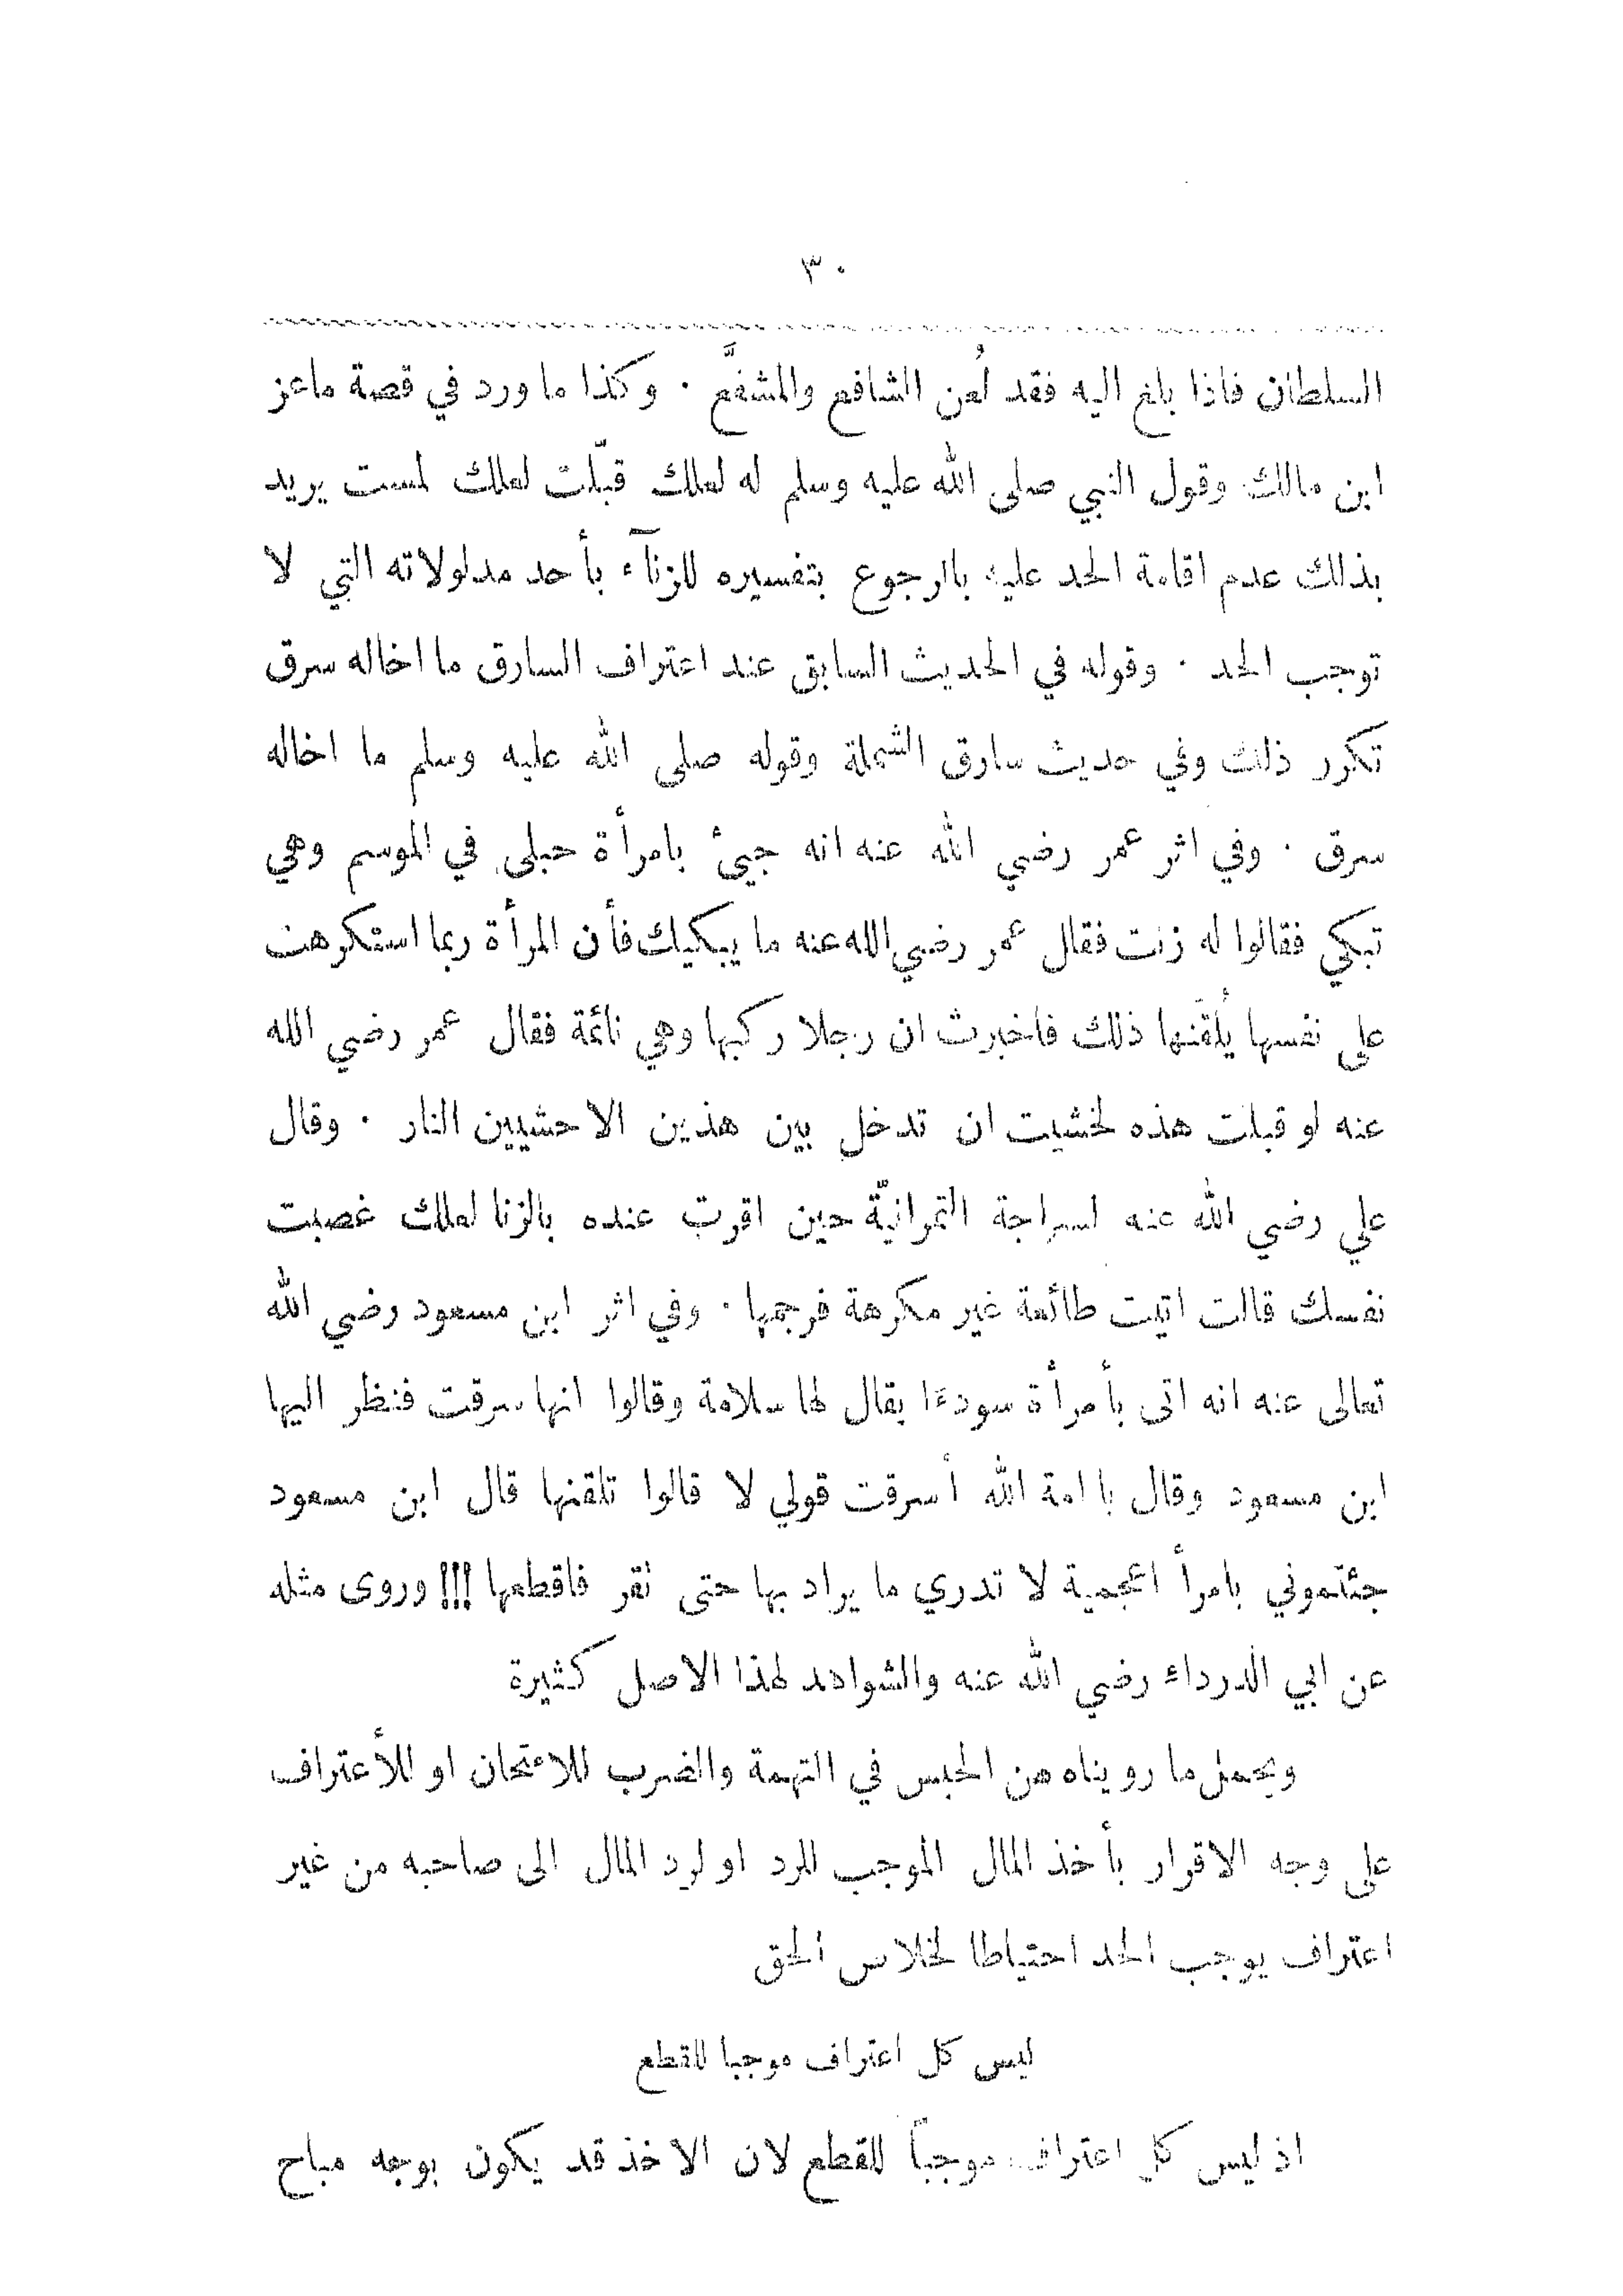 ٣٠
السلطان فاذا بلغ اليه فقد لُعن الشافع والمشفَّع · وكذا ما ورد في قصة ماعز
ابن مالك وقول النبي صلى الله عليه وسلم له لعلك قبّلت لعلك لمست يريد
بذلك عدم اقامة الحد عليه بالرجوع بتفسيره للزنآء بأحد مدلولاته التي لا
توجب الحد · وقوله في الحديث السابق عند اعتراف السارق ما اخاله سرق
تكرر ذلك وفي حديث سارق الشملة وقوله صلى الله عليه وسلم ما اخاله
سرق · وفي اثر عمر رضي الله عنه انه جيئ بامرأة حبلى في الموسم وهي
تبكي فقالوا له زنت فقال عمر رضي الله عنه ما يبكيك فأن المرأة ربما استكرهت
على نفسها يُلقنها ذلك فاخبرت ان رجلا ركبها وهي نائمة فقال عمر رضي الله
عنه لو قبلت هذه لخشيت ان تدخل بين هذين الاحشيين النار · وقال
علي رضي الله عنه لسراجة التمرانيّة حين اقرت عنده بالزنا لعلك غصبت
نفسك قالت اتيت طائعة غير مكرهة فرجمها · وفي اثر ابن مسعود رضي الله
تعالى عنه انه اتى بأمرأة سودءا يقال لها سلامة وقالوا انها سرقت فنظر اليها
ابن مسعود وقال يا امة الله أسرقت قولي لا قالوا تلقنها قال ابن مسعود
جئتموني بامرأ اعجمية لا تدري ما يراد بها حتى تقر فاقطعها !!! وروى مثله
عن ابي الدرداء رضي الله عنه والشواهد لهذا الاصل كثيرة
ويحمل ما رويناه من الحبس في التهمة والضرب للامتحان او للأعتراف
على وجه الاقرار بأخذ المال الموجب للرد او لرد المال الى صاحبه من غير
اعتراف يوجب الحد احتياطا لخلاص الحق
ليس كل اعتراف موجبا للقطع
اذ ليس كل اعتراف موجباً للقطع لان الاخذ قد يكون بوجه مباح